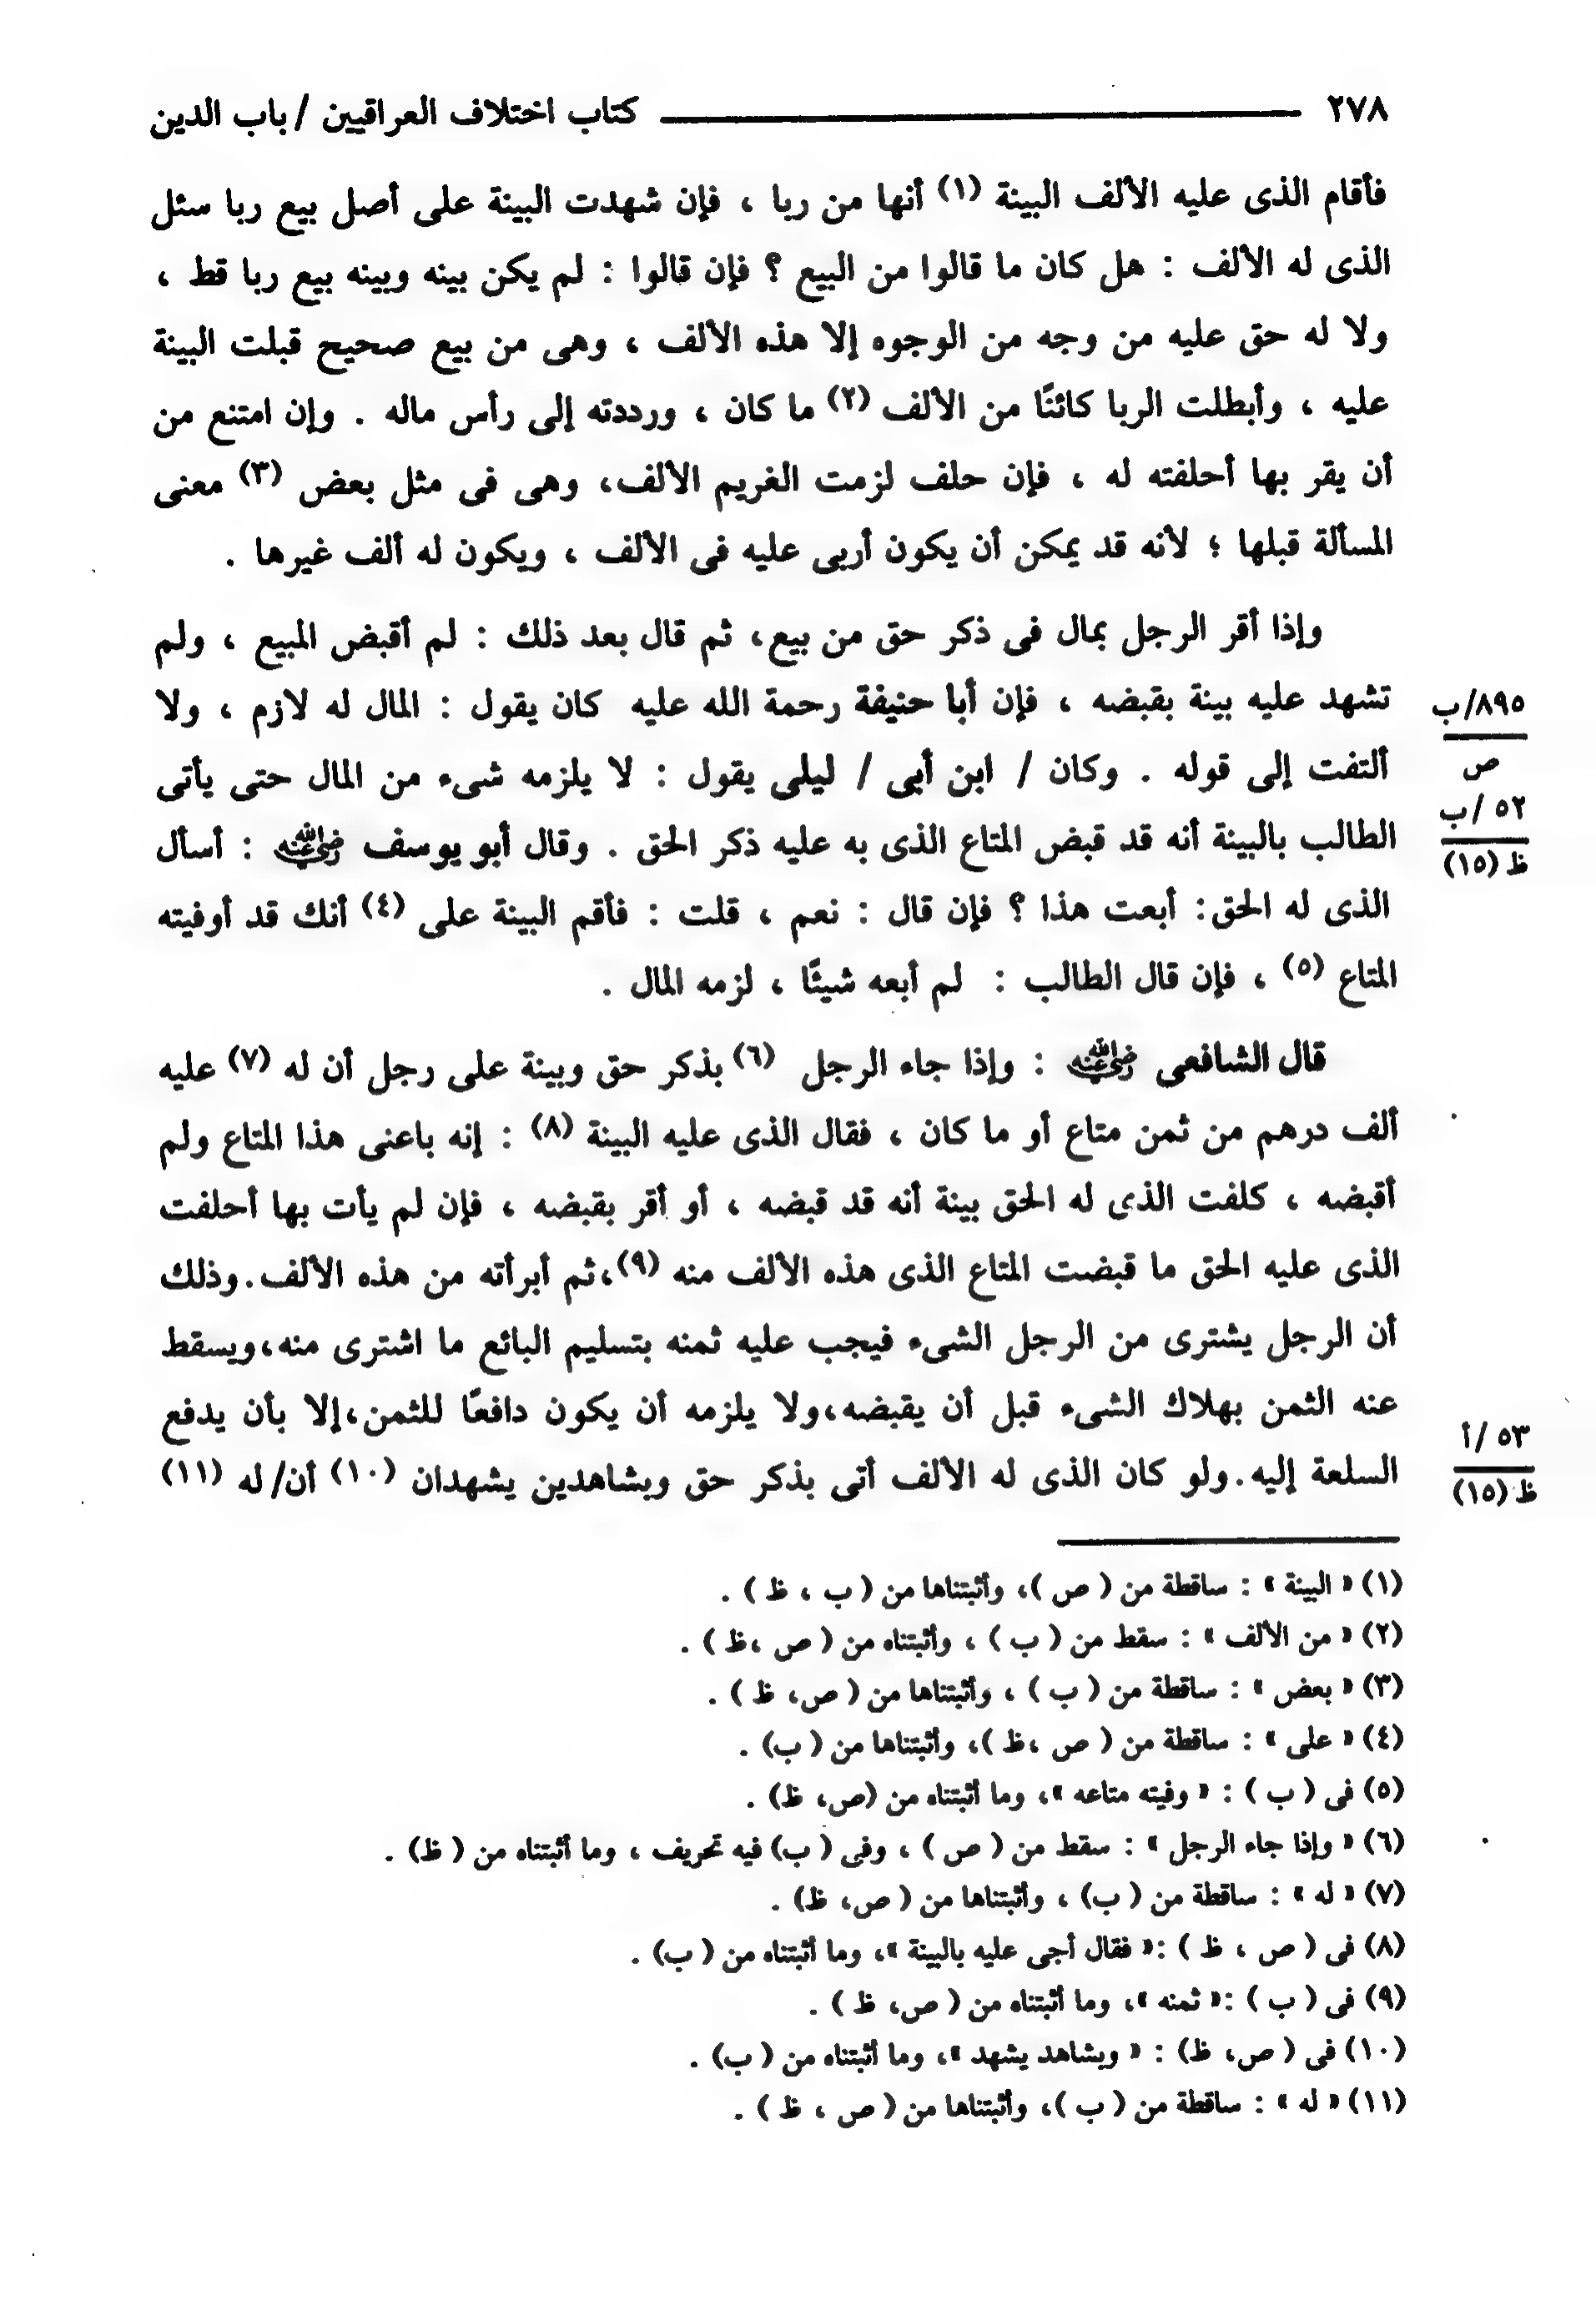 ٢٧٨ ــــــــــــــــــــ كتاب اختلاف العراقيين / باب الدين
فأقام الذى عليه الألف البينة (١) أنها من ربا ، فإن شهدت البينة على أصل بيع ربا سئل
الذى له الألف : هل كان ما قالوا من البيع ؟ فإن قالوا : لم يكن بينه وبينه بيع ربا قط ،
ولا له حق عليه من وجه من الوجوه إلا هذه الألف ، وهى من بيع صحيح قبلت البينة
عليه ، وأبطلت الربا كائنًا من الألف (٢) ما كان ، ورددته إلى رأس ماله . وإن امتنع من
أن يقر بها أحلفته له ، فإن حلف لزمت الغريم الألف، وهى فى مثل بعض (٣) معنى
المسألة قبلها ؛ لأنه قد يمكن أن يكون أربى عليه فى الألف ، ويكون له ألف غيرها .
وإذا أقر الرجل بمال فى ذكر حق من بيع، ثم قال بعد ذلك : لم أقبض المبيع ، ولم
تشهد عليه بينة بقبضه ، فإن أبا حنيفة رحمة الله عليه كان يقول : المال له لازم ، ولا
ألتفت إلى قوله . وكان / ابن أبى / ليلى يقول : لا يلزمه شىء من المال حتى يأتى
الطالب بالبينة أنه قد قبض المتاع الذى به عليه ذكر الحق . وقال أبو يوسف رضي الله عنه : أسأل
الذى له الحق: أبعت هذا ؟ فإن قال : نعم ، قلت : فأقم البينة على (٤) أنك قد أوفيته
المتاع (٥) ، فإن قال الطالب : لم أبعه شيئًا ، لزمه المال .
٨٩٥/ب
ص
٥٢ /ب
ظ (١٥)
قال الشافعى رضي الله عنه : وإذا جاء الرجل (٦) بذكر حق وبينة على رجل أن له (٧) عليه
ألف درهم من ثمن متاع أو ما كان ، فقال الذى عليه البينة (٨) : إنه باعنى هذا المتاع ولم
أقبضه ، كلفت الذى له الحق بينة أنه قد قبضه ، أو أقر بقبضه ، فإن لم يأت بها أحلفت
الذى عليه الحق ما قبضت المتاع الذى هذه الألف منه (٩)،ثم أبرأته من هذه الألف.وذلك
أن الرجل يشترى من الرجل الشىء فيجب عليه ثمنه بتسليم البائع ما اشترى منه،ويسقط
عنه الثمن بهلاك الشىء قبل أن يقبضه،ولا يلزمه أن يكون دافعًا للثمن،إلا بأن يدفع
السلعة إليه.ولو كان الذى له الألف أتى بذكر حق وبشاهدين يشهدان (١٠) أن/ له (١١)
٥٣ /أ
ظ (١٥)
(١) « البينة » : ساقطة من ( ص )، وأثبتناها من ( ب ، ظ ) .
(٢) « من الألف » : سقط من ( ب ) ، وأثبتناه من ( ص ،ظ ) .
(٣) « بعض » : ساقطة من ( ب ) ، وأثبتناها من ( ص، ظ ) .
(٤) « على » : ساقطة من ( ص ،ظ )، وأثبتناها من ( ب) .
(٥) فى ( ب ) : « وفيته متاعه »، وما أثبتناه من (ص، ظ) .
(٦) « وإذا جاء الرجل » : سقط من ( ص ) ، وفى ( ب) فيه تحريف ، وما أثبتناه من ( ظ) .
(٧) « له » : ساقطة من ( ب) ، وأثبتناها من ( ص، ظ) .
(٨) فى ( ص ، ظ ) :« فقال أجى عليه بالبينة »، وما أثبتناه من ( ب) .
(٩) فى ( ب ) :« ثمنه »، وما أثبتناه من ( ص، ظ ) .
(١٠) فى ( ص، ظ) : « وبشاهد يشهد »، وما أثبتناه من ( ب) .
(١١) « له » : ساقطة من ( ب )، وأثبتناها من ( ص ، ظ ) .